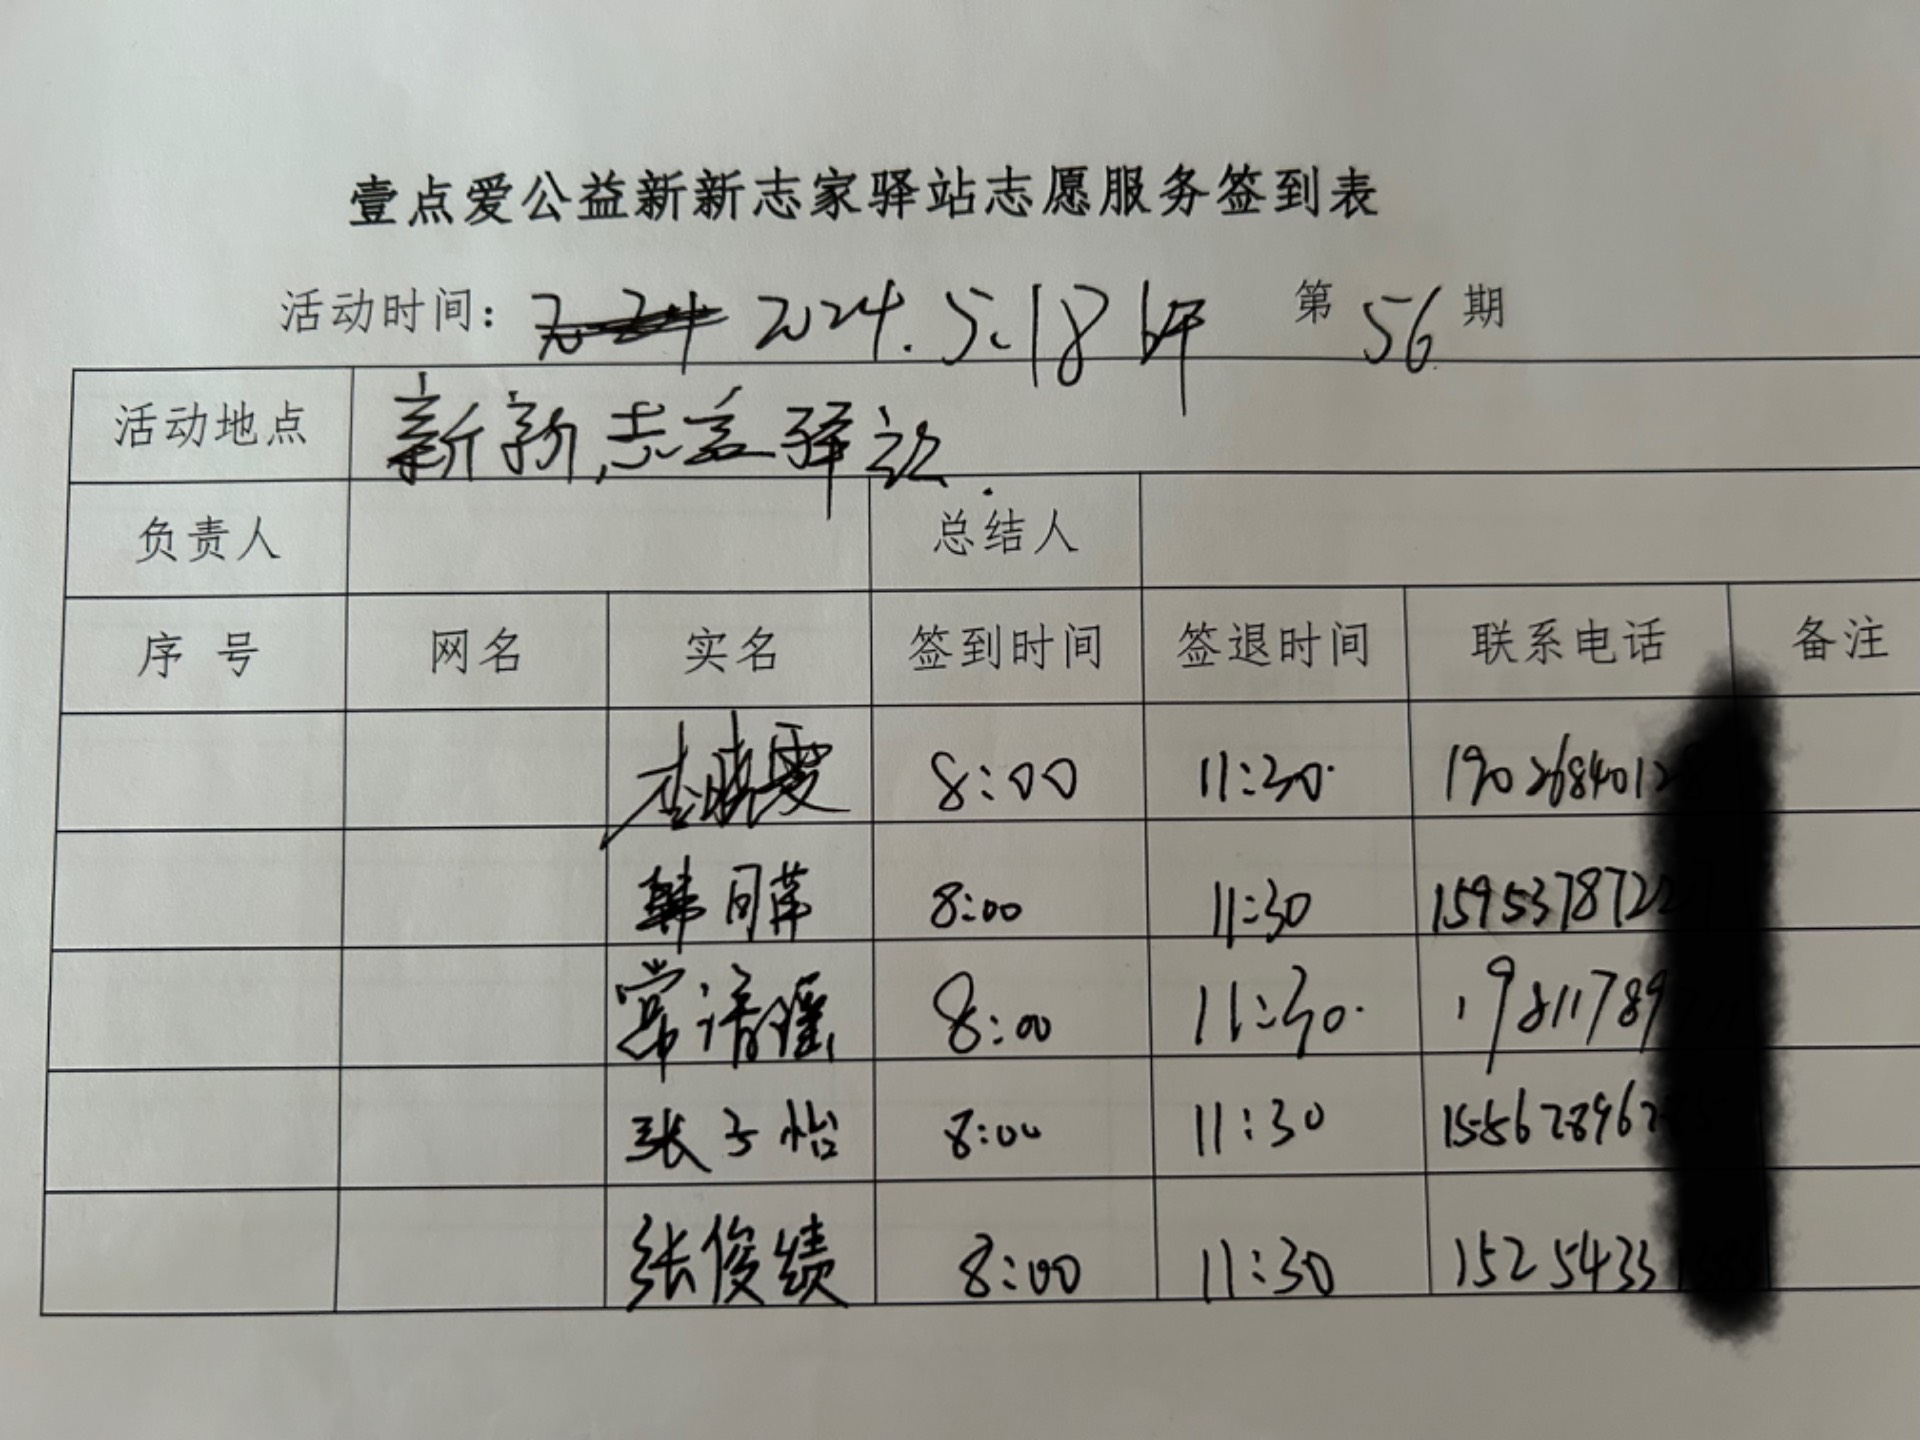 壹点爱公益新新志家驿站志愿服务签到表
活动时间: 2024.5.18 下午 第 56 期
活动地点 新新志益驿站.
负责人 总结人
序 号 网名 实名 签到时间 签退时间 联系电话 备注
李晓雯 8:00 11:30 190268401
韩同苹 8:00 11:30 1595378722
常清瑶 8:00 11:30 19811789
张子怡 8:00 11:30 155628962
张俊绩 8:00 11:30 1525433